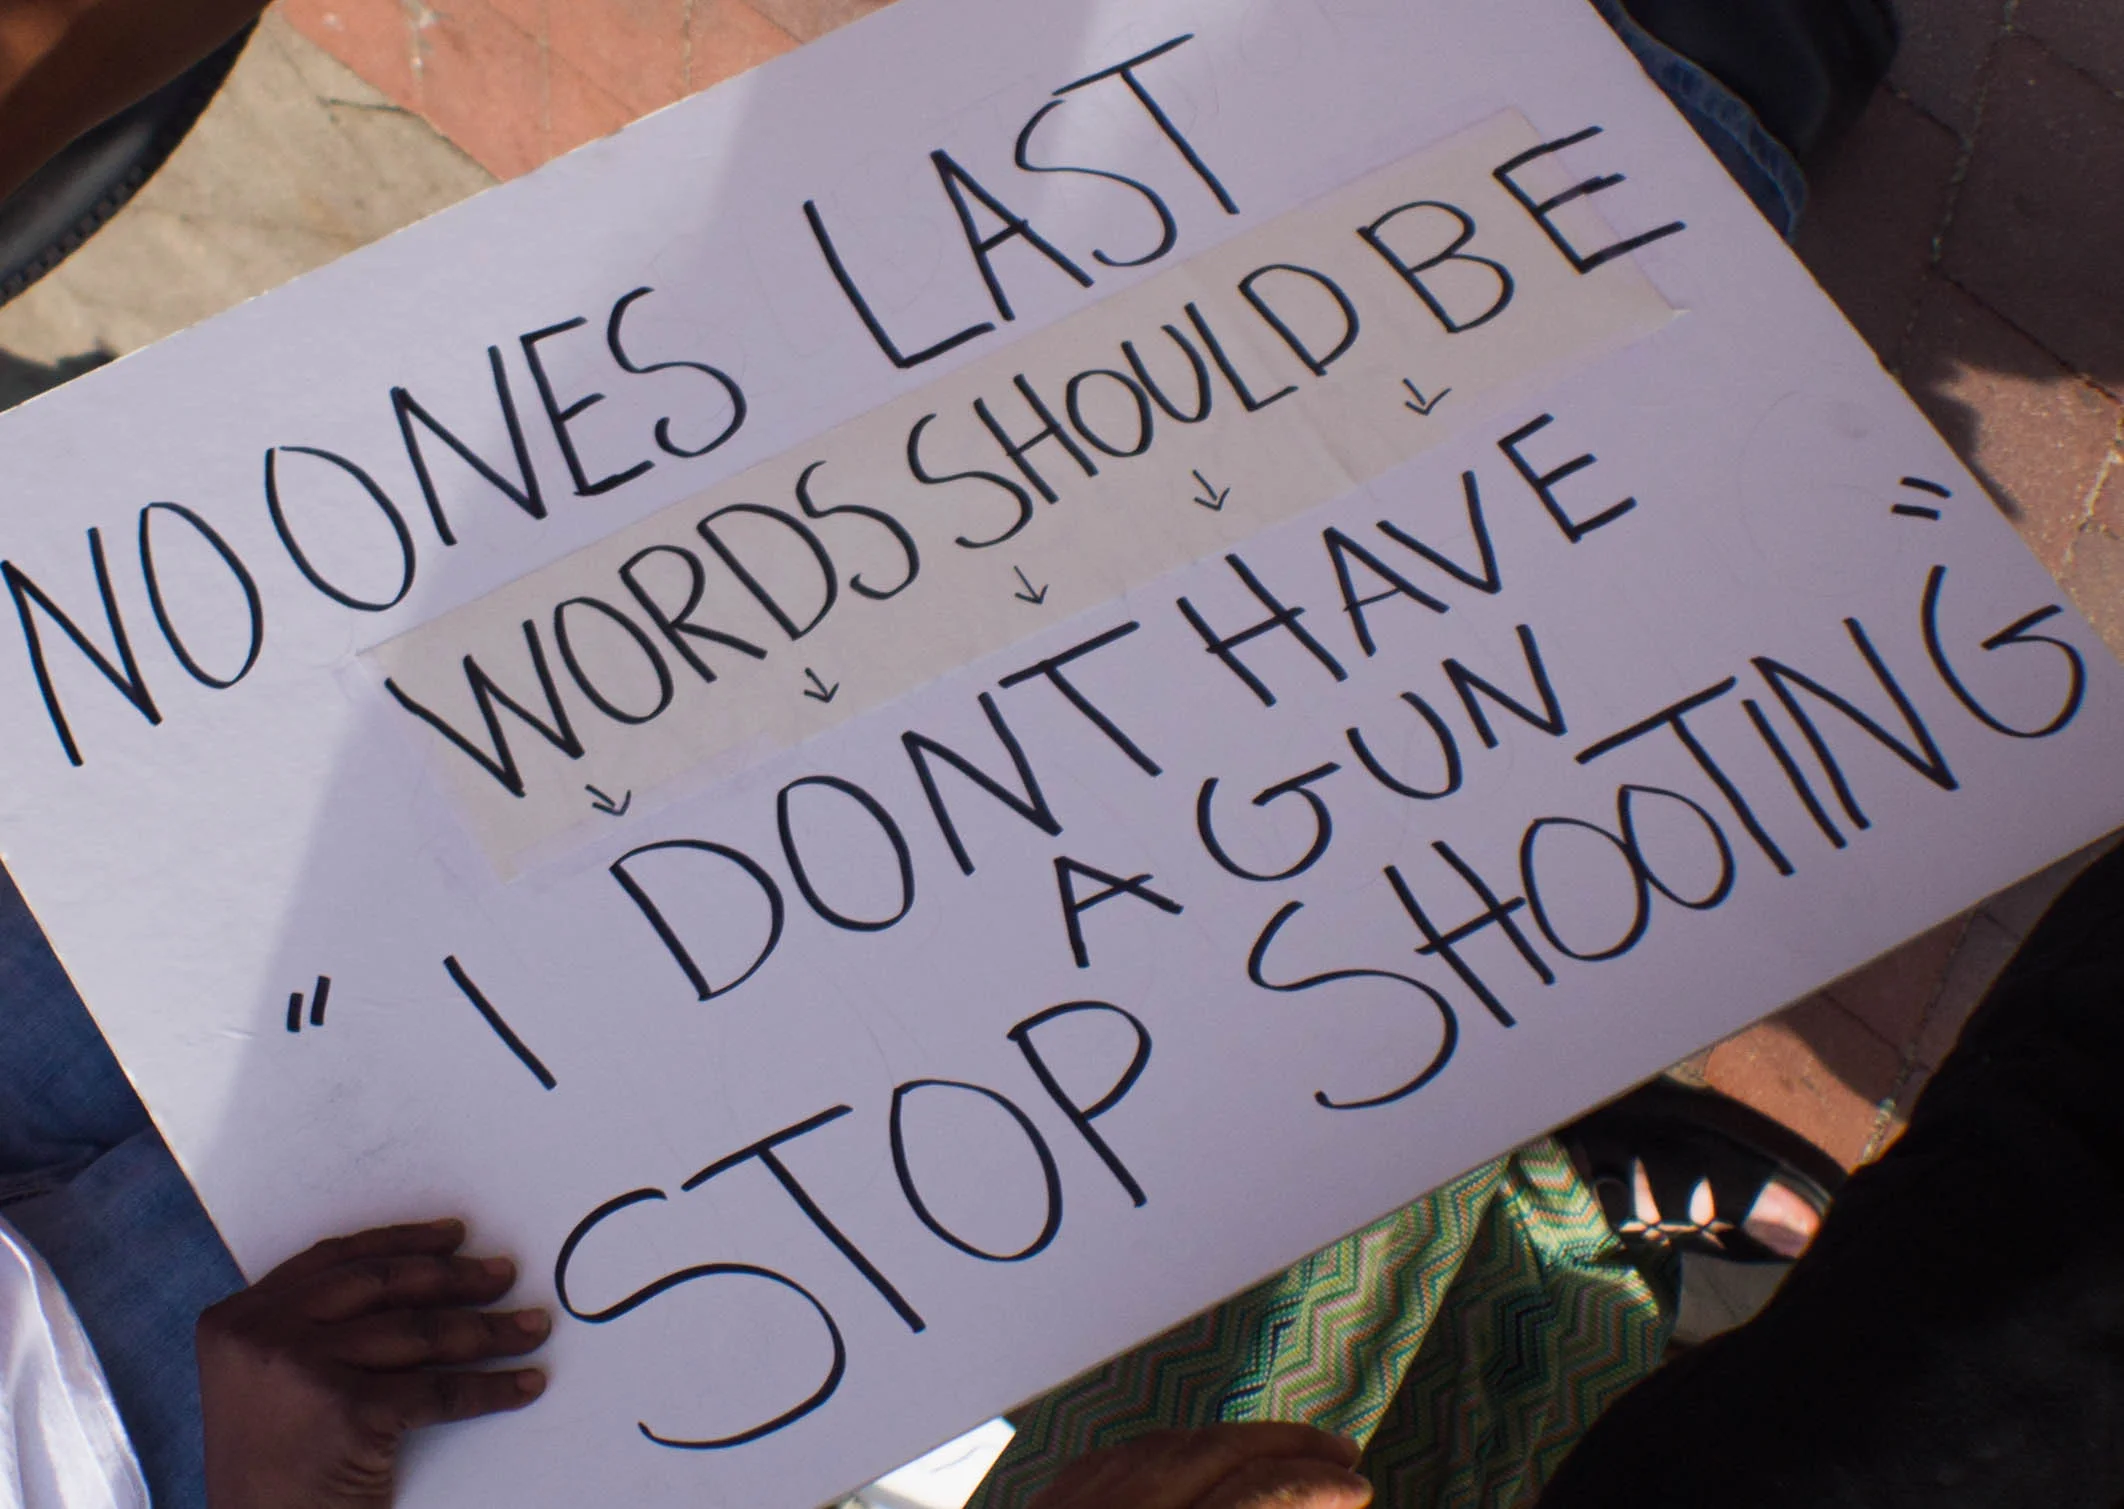 NO ONES LAST
WORDS SHOULD BE
↓ ↓ ↓ ↓ ↓
"I DONT HAVE
A GUN
STOP SHOOTING"